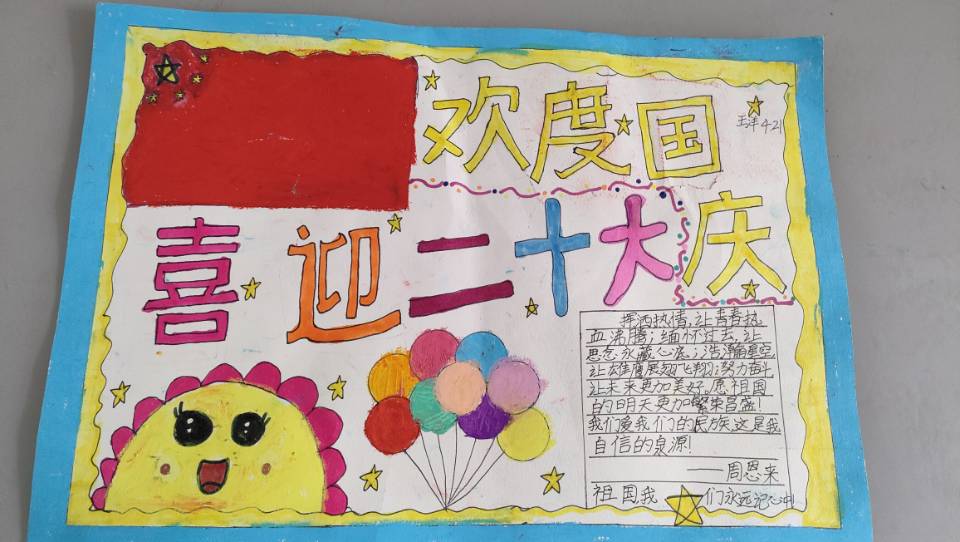 欢度国
王洋 4-21
庆
喜迎二十大
挥洒热情,让青春热
血沸腾;缅怀过去,让
思念永藏心底;浩瀚星空
让雄鹰展翅飞翔;努力奋斗
让未来更加美好。愿祖国
的明天更加繁荣昌盛!
我们爱我们的民族,这是我
自信的泉源!
——周恩来
祖国我 们永远记心中